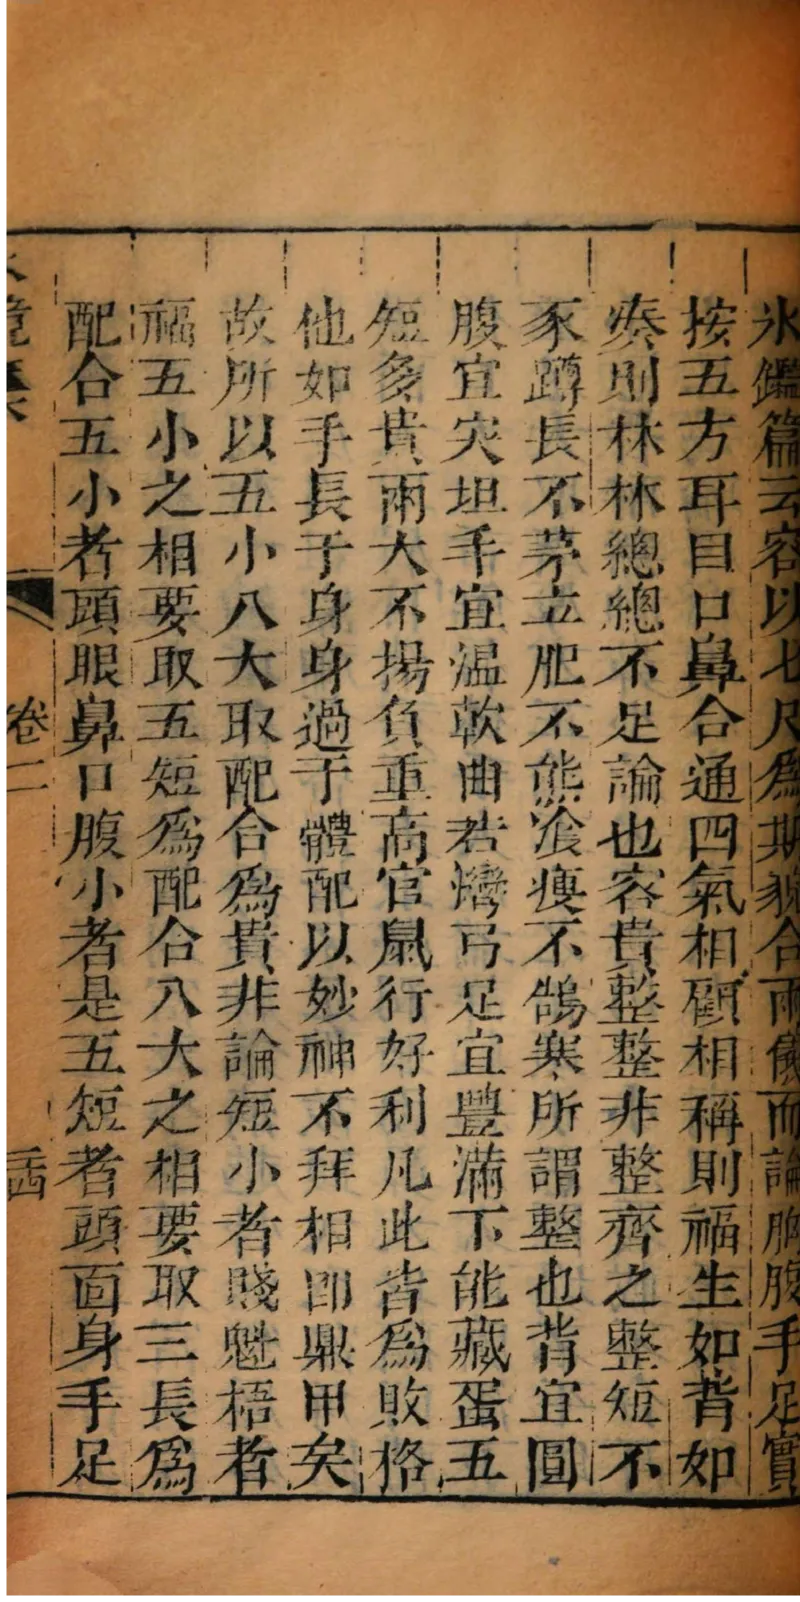 氷鑑篇云容以七尺爲期貌合兩儀而論胸腹手足實
按五方耳目口鼻合通四氣相顧相稱則福生如背如
奏則林林總總不足論也容貴整整非整齊之整短不
豕蹲長不茅立肥不熊湌瘦不鵠寒所謂整也背宜圓
腹宜突坦手宜溫軟曲若彎弓足宜豐滿下能藏蛋五
短多貴兩大不揚負重高官鼠行好利凡此皆爲敗格
他如手長于身身過于體配以妙神不拜相卽鼎甲矣
故所以五小八大取配合爲貴非論短小者賤魁梧者
福五小之相要取五短爲配合八大之相要取三長爲
配合五小者頭眼鼻口腹小者是五短者頭面身手足
卷二